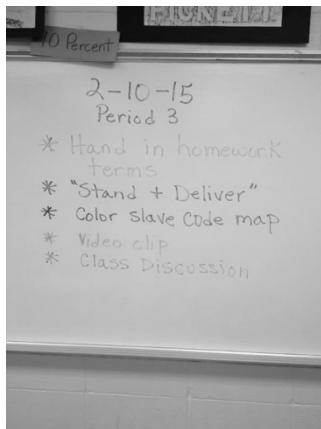 10 Percent
2-10-15
Period 3
* Hand in homework
terms
* "Stand + Deliver"
* Color slave code map
* Video clip
* Class Discussion